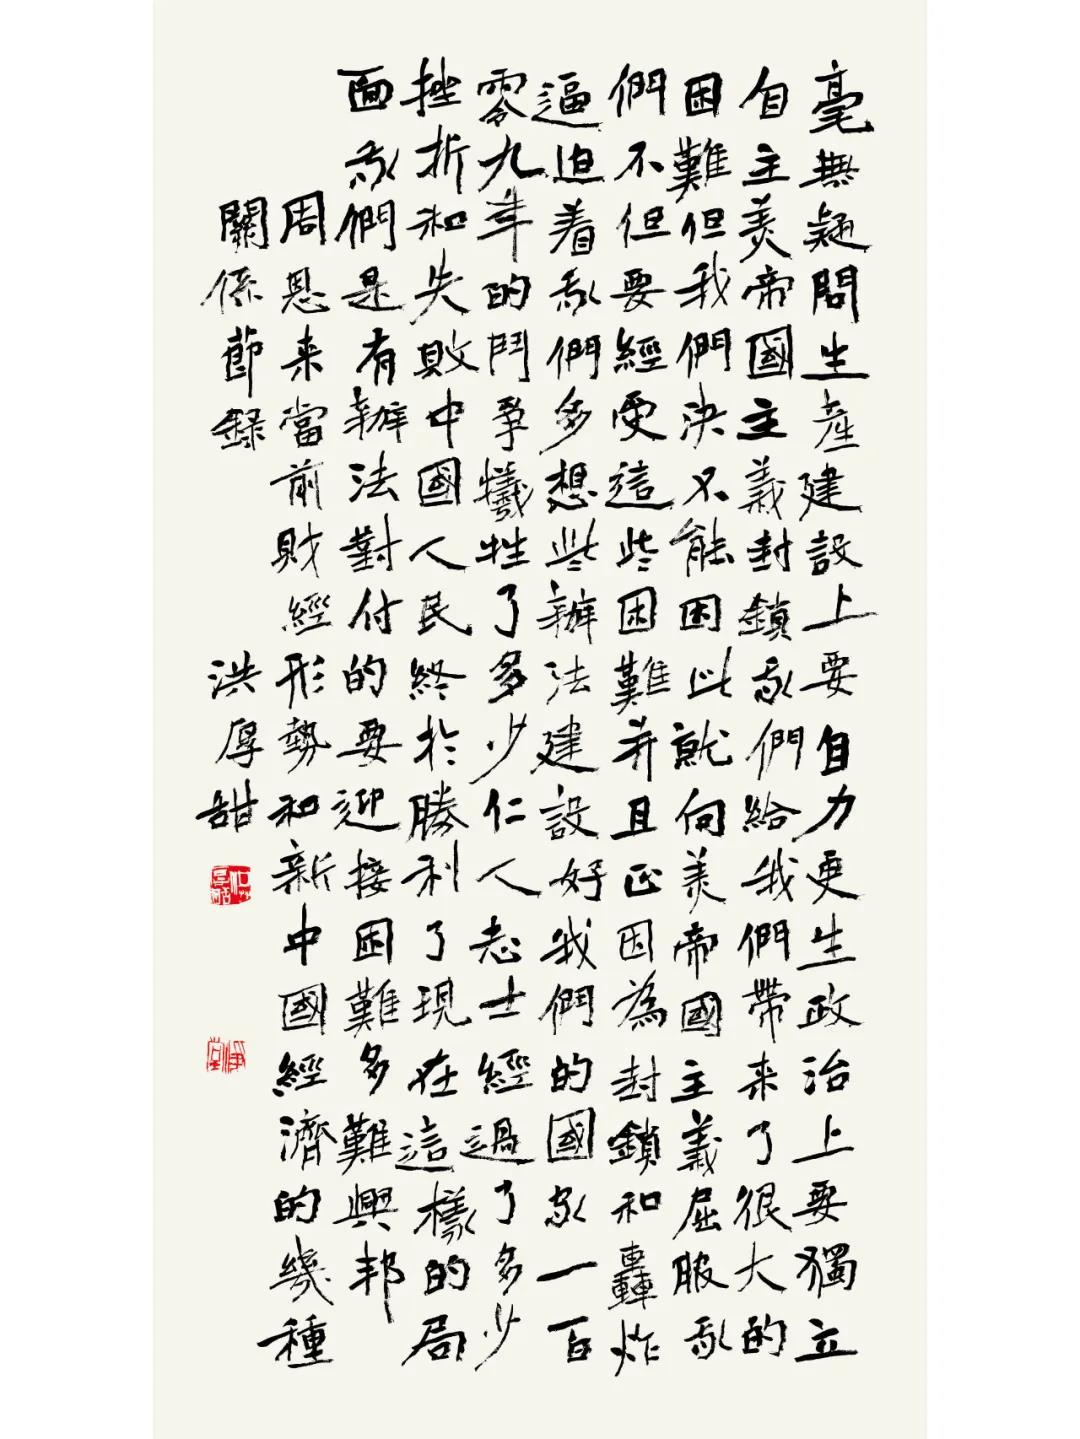 毫無疑問生產建設上要自力更生政治上要獨立
自主美帝國主義封鎖我們給我們帶来了很大的
困難但我們決不能因此就向美帝國主義屈服我
們不但要經受這些困難并且正因為封鎖和轟炸
逼迫着我們多想些辦法建設好我們的國家一百
零九年的鬥爭犧牲了多少仁人志士經過了多少
挫折和失敗中國人民終於勝利了現在這樣的局
面我們是有辦法對付的要迎接困難多難興邦
周恩来當前財經形勢和新中國經濟的幾種
關係節録
洪厚甜